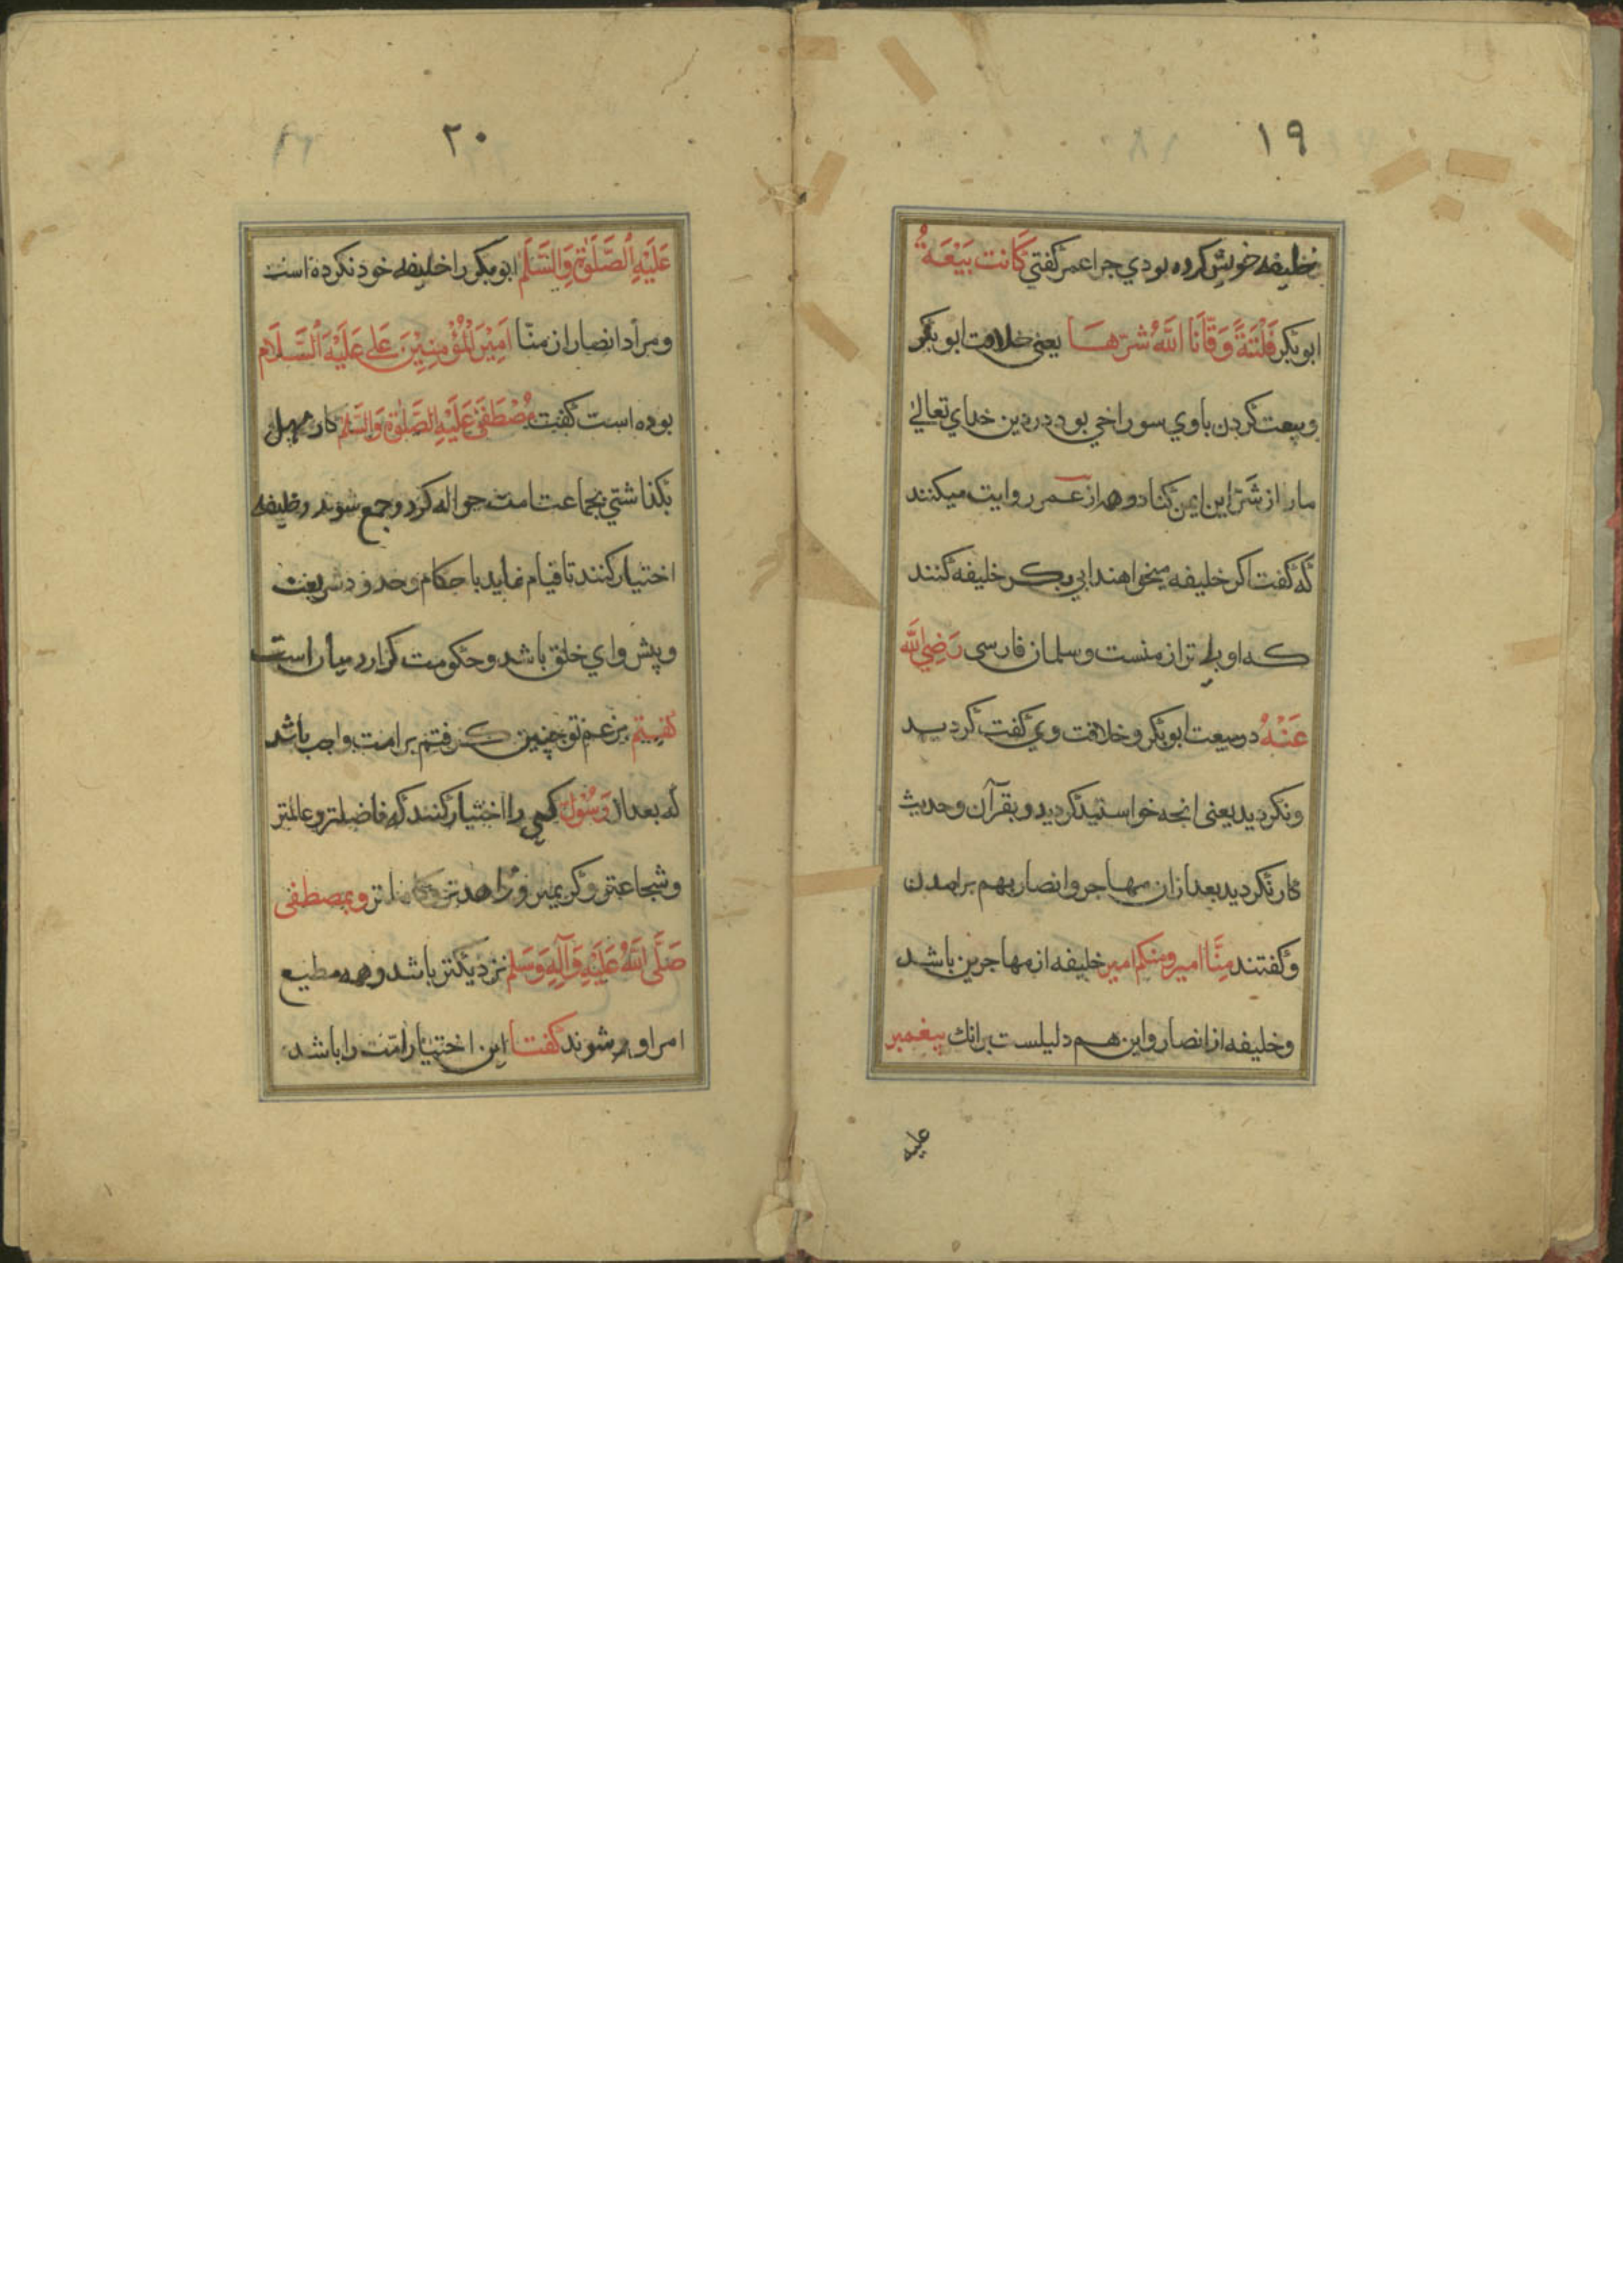 ١٩
خليفه خويش كرده بودي چرا عمر گفتي كَانَت بَيْعَةُ
ابوبكر فَلْتَةً وَقَّانَا اللَّهُ شرّهَا يعنى خلافت ابوبكر
وبيعت كردن باوي سوراخي بود در دين خداي تعالي
مار از شرّ اين ايمن كناد وهم از عمر روايت ميكنند
كه گفت اكر خليفه ميخواهند ابي بكر خليفه كنند
كه او بلي تر از منست وسلمان فارسى رَضِيَ اللّه
عَنْهُ در بيعت ابوبكر وخلافت وي گفت كرديد
ونكرديد يعنى انجه خواستيد كرديد وبقرآن وحديث
كار نكرديد بعد از ان مهاجر وانصار بهم برامدن
وگفتند مِنَّا امير ومنكم امير خليفه از مهاجرين باشد
وخليفه از انصار واين هم دليلست برانك پيغمبر
عليه
٢٠
عَلَيْهِ الصَّلوةُ وَالسَّلَم ابوبكر را خليفه خود نكرده است
ومراد انصار از منّا اَمِيْرَ الْمُؤْمِنِيْنَ عَلي عَلَيْهِ السَّلَام
بوده است گفت مُصْطَفَى عَلَيْهِ الصَّلوة وَالسَّلم كار مهمل
بگذاشتي بجماعت امت حواله كرد وجمع شوند وخليفه
اختيار كنند تا قيام نمايد باحكام وحدود شريعت
وپيش واي خلق باشد وحكومت گزارد ميان امت
گفتم بزعم تو چنين گرفتم بر امت واجب باشد
كه بعد از رَسُول كسي را اختيار كنند كه فاضلتر وعالمتر
وشجاعتر وكريمتر وزاهدتر وبمصطفى
صَلَّى اللَّهُ عَلَيْهِ وَآلِهِ وَسَلم نزديكتر باشد وهمه مطيع
امر او شوند گفتا اين اختيار امّت را باشد